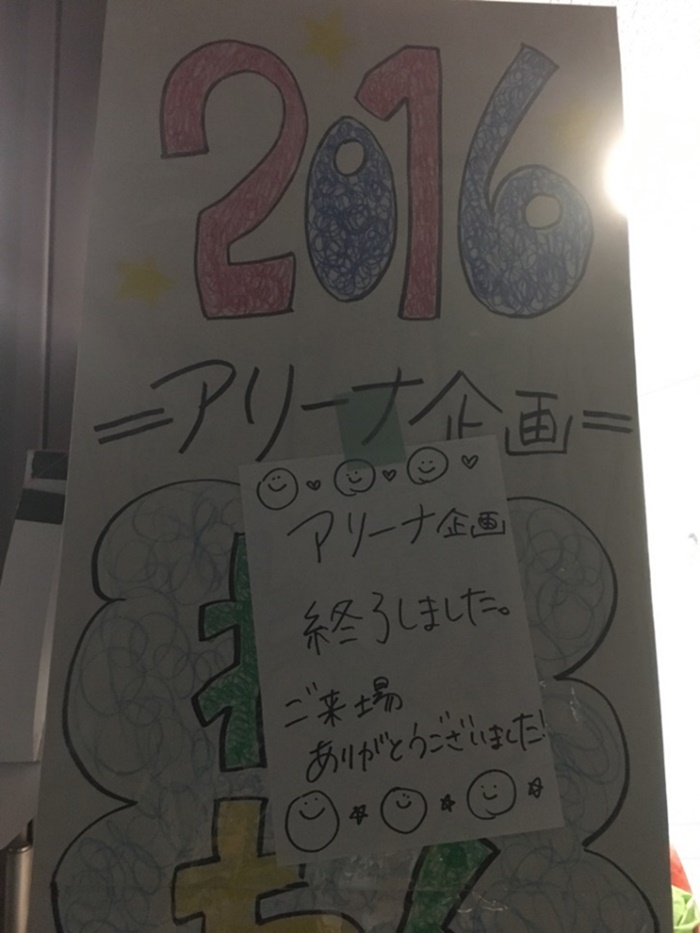 2016
=アリーナ企画=
アリーナ企画
終了しました。
ご来場
ありがとうございました!